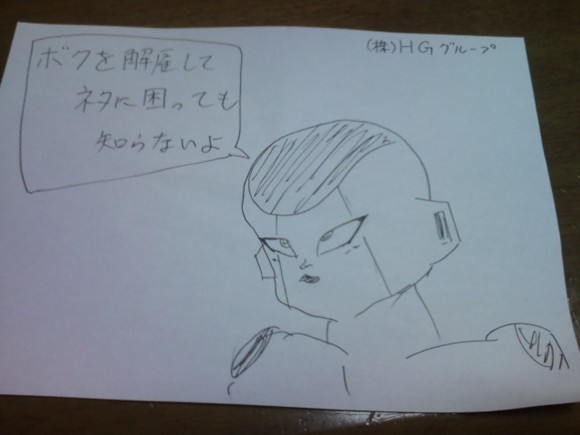 (株)HGグループ
ボクを解雇して
ネタに困っても
知らないよ